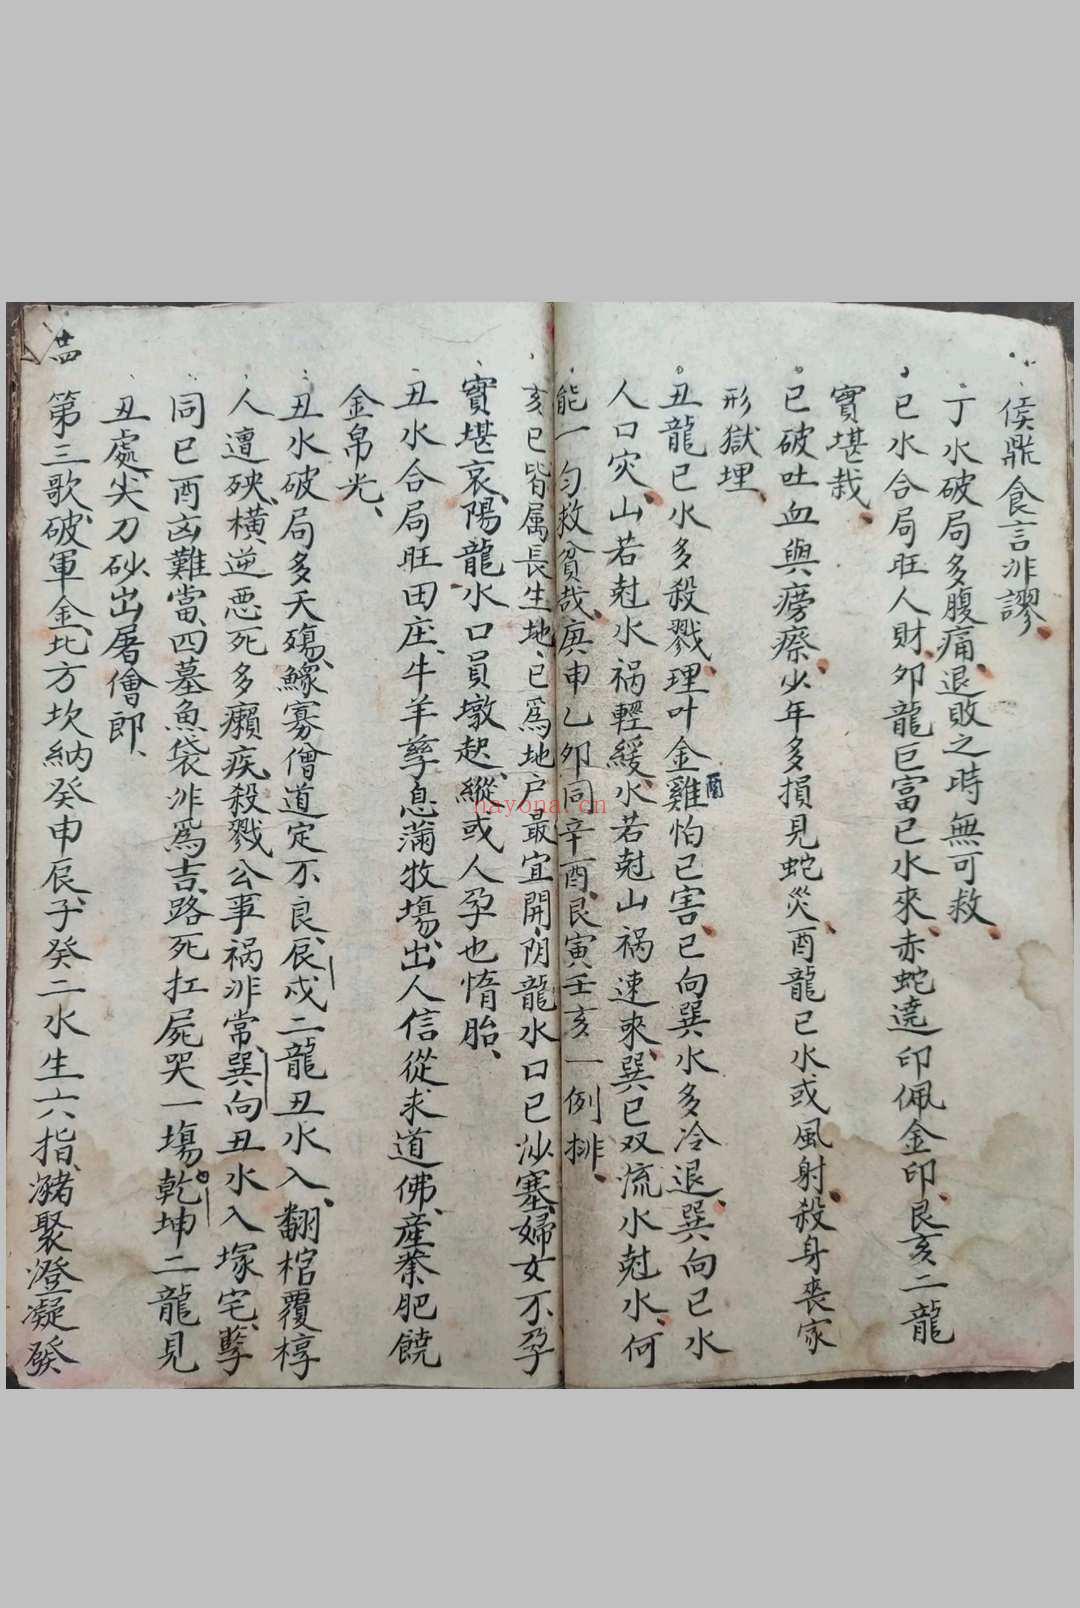 侯鼎食言非謬
丁水破局多腹痛退敗之時無可救
巳水合局旺人財夘龍巨富巳水來赤蛇遶印佩金印艮亥二龍
實堪裁
巳破吐血與癆瘵少年多損見蛇災酉龍巳水或風射殺身喪家
形獄埋
丑龍巳水多殺戮理叶金雞酉怕巳害巳向巽水多冷退巽向巳水
人口灾山若尅水禍輕緩水若尅山禍速來巽巳双流水尅水何
能一勻救貧哉庚申乙夘同辛酉艮寅壬亥一例排
亥巳皆属長生地巳爲地户最宜開阴龍水口巳沙塞婦女不孕
實堪哀陽龍水口員墩起縱或人孕也惰胎
丑水合局旺田庄牛羊孳息滿牧塲出人信從求道佛產豢肥饒
金帛光
丑水破局多夭殤鰥寡僧道定不良辰戌二龍丑水入翻棺覆椁
人遭殃橫逆惡死多癩疾殺戮公事禍非常巽向丑水入塚宅孽
同巳酉凶難當四墓魚袋非爲吉路死扛屍哭一塲乾坤二龍見
丑處尖刀砂出屠儈郎
第三歌破軍金北方坎納癸申辰子癸二水生六指瀦聚澄凝發
廿四
hayona.cn